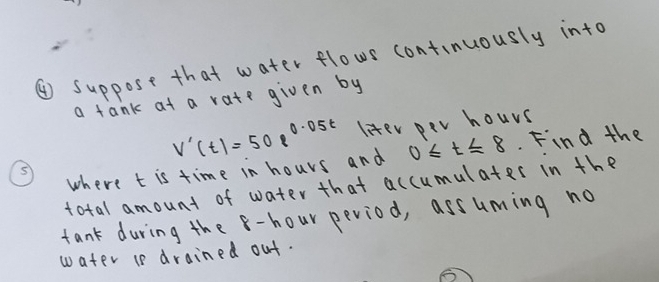 ④ Suppose that water flows continuously into
a tank at a rate given by
V'(t) = 50 e^0.05t liter per hours
⑤ where t is time in hours and 0 ≤ t ≤ 8. Find the
total amount of water that accumulates in the
tank during the 8-hour period, assuming no
water is drained out.